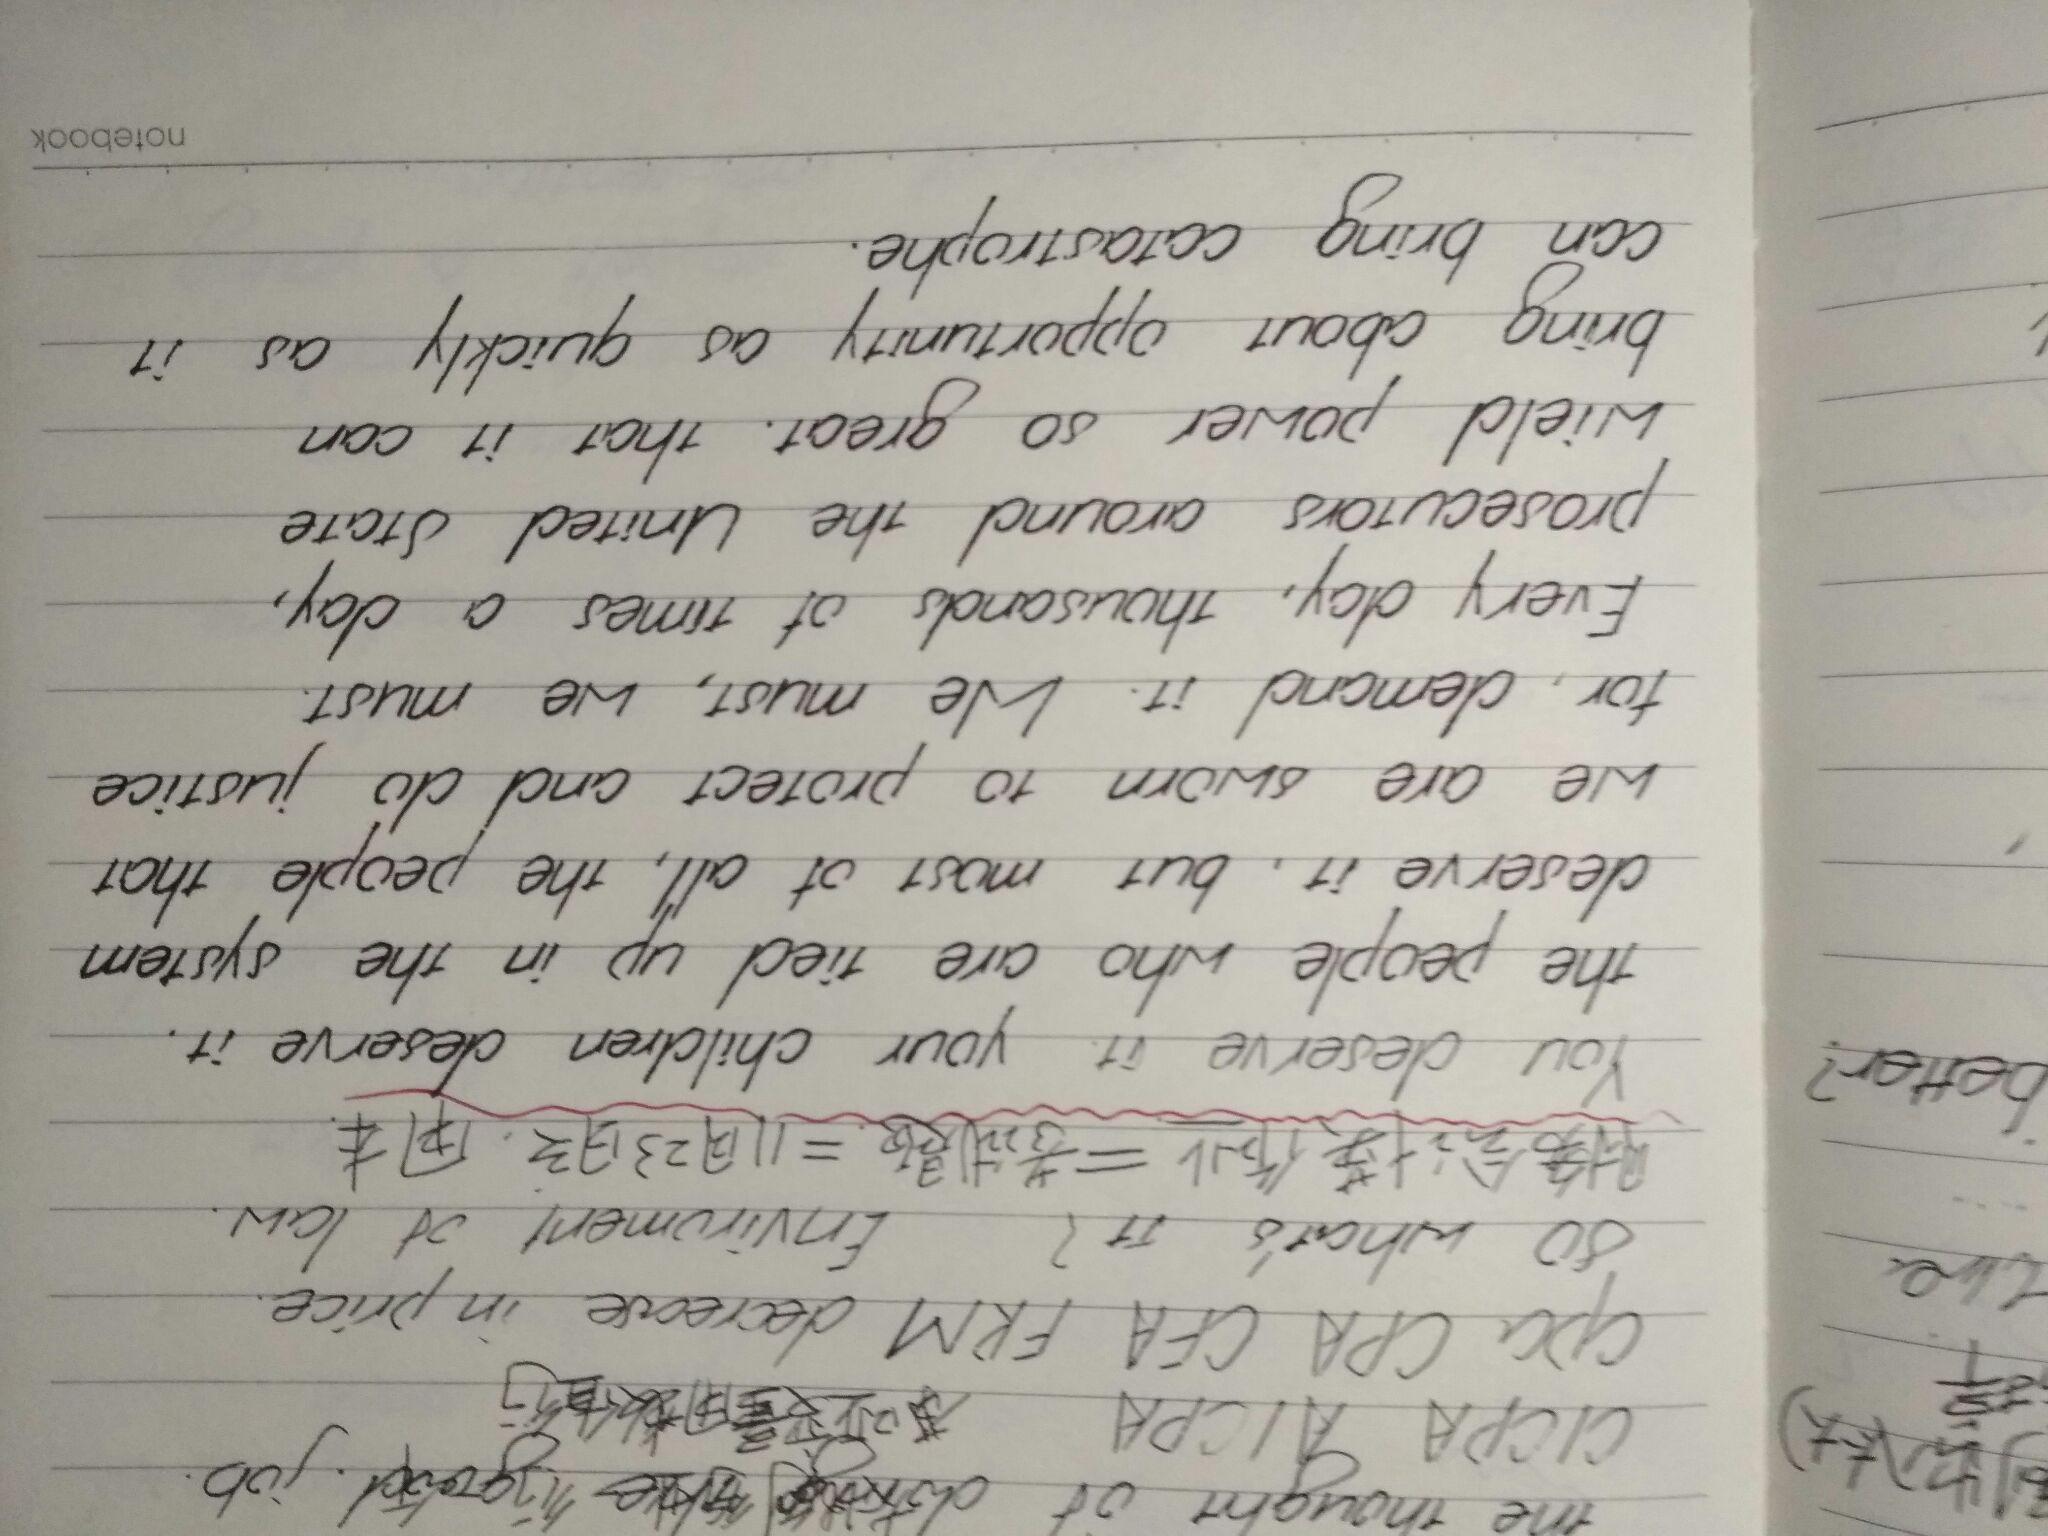 the thought of good job.
CICPA AICPA
cpa CPA CFA FRM decrease in price.
So what's it? Enviroment of law.
You deserve it. your children deserve it.
the people who are tied up in the system
deserve it, but most of all, the people that
we are sworn to protect and do justice
for, demand it. We must, we must.
Every day, thousands of times a day,
prosecutors around the United State
wield power so great. that it can
bring about opportunity as quickly as it
can bring catastrophe.
notebook
better?